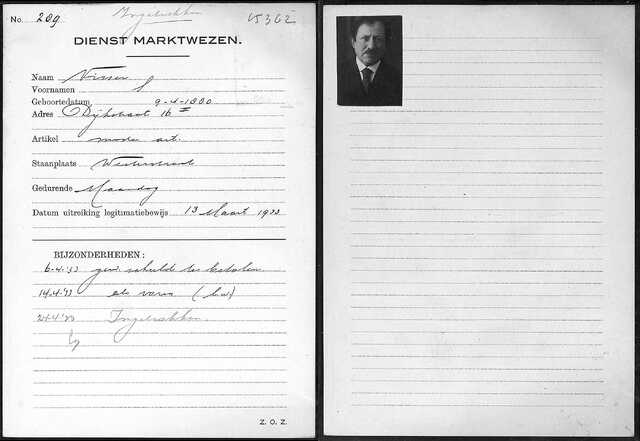 No. 209 Ingetrokken 15362
DIENST MARKTWEZEN.
Naam Visser
Voornamen S
Geboortedatum 9-4-1880
Adres Dijkstraat 16 II
Artikel mode art.
Staanplaats Westerstraat
Gedurende Maandag
Datum uitreiking legitimatiebewijs 13 Maart 1933
BIJZONDERHEDEN:
6-4-'33 gew. schuld te betalen
14-4-'33
24-4-'33 Ingetrokken.
Z. O. Z.